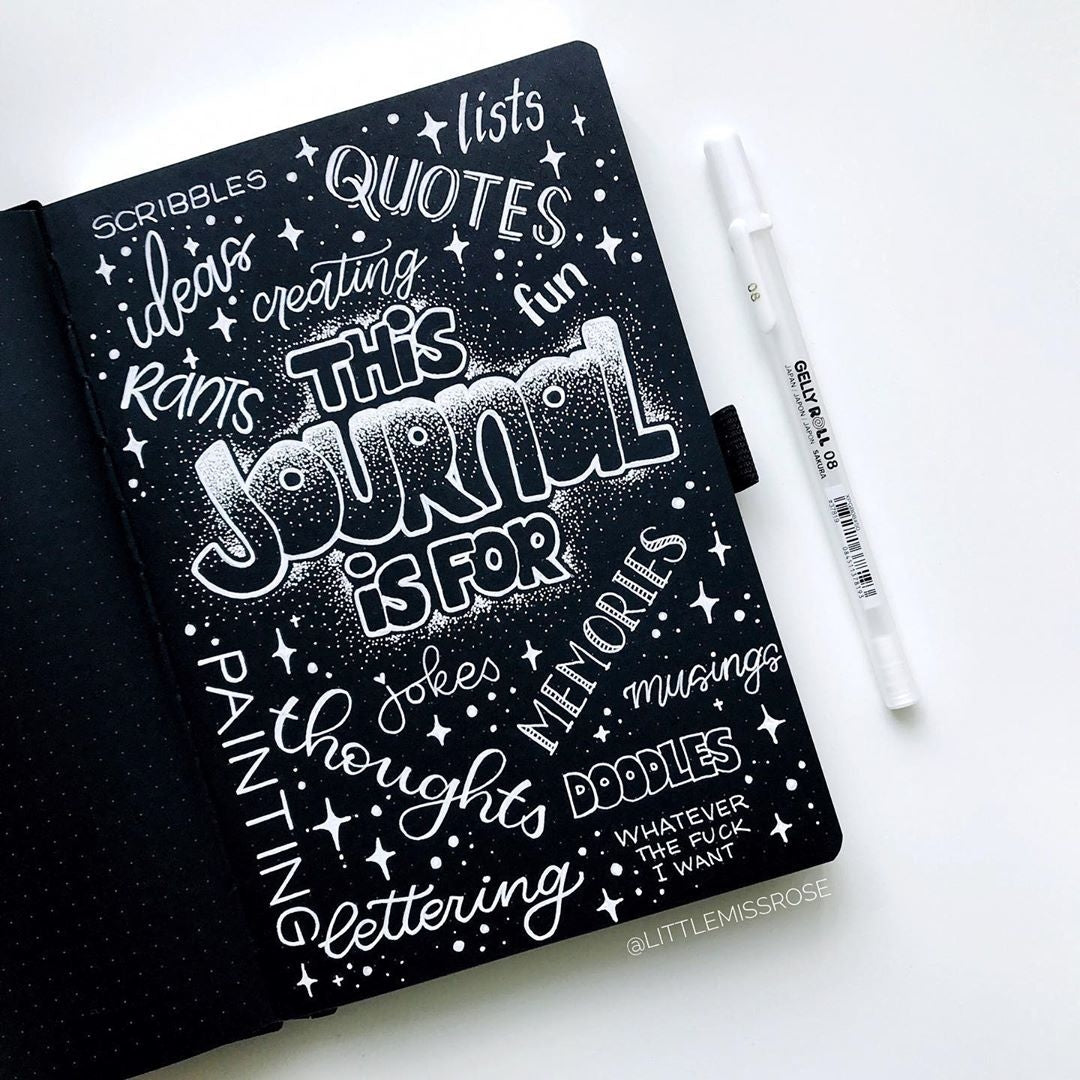 lists
SCRIBBLES
QUOTES
ideas
creating
fun
RANTS
THiS
JOURNAL
iS FOR
MEMORIES
jokes
musings
PAINTING
thoughts
DOODLES
WHATEVER
THE FUCK
I WANT
lettering
@LITTLEMISSROSE
08
GELLY ROLL 08
JAPAN / JAPON / JAPÓN SAKURA